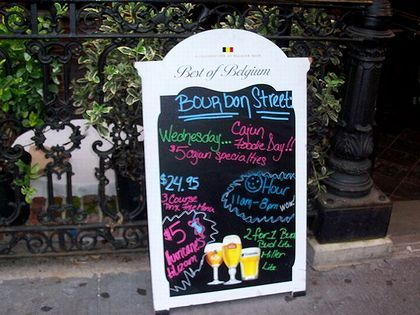 Best of Belgium
Bourbon Street
Wednesday... Cajun
Foodie Day!!
$5 cajun specialties
$24.95
3 Course
Menu
Hour
11am-8pm WOW!
$5
hurricanes
2 for 1 Bud
Bud Lite
Miller
Lite